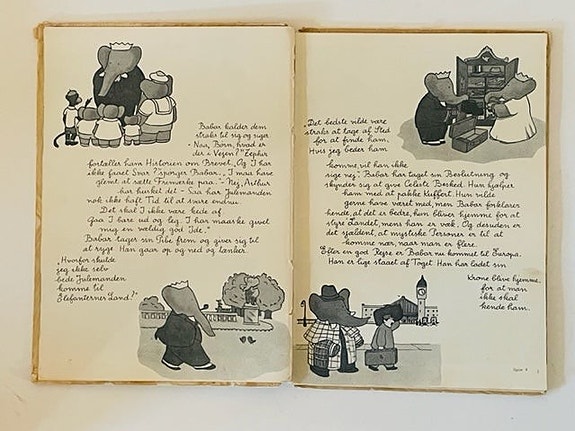 Babar kalder dem
straks til sig og siger
- Naa, Børn, hvad er
der i Vejen?" Zephir
fortæller ham Historien om Brevet. "Og I har
ikke faaet Svar?" spørger Babar. "I maa have
glemt at sætte Frimærke paa." - "Nej, Arthur
har husket det" - "Saa har Julemanden
nok ikke haft Tid til at svare endnu.
Det skal I ikke være kede af.
Gaa I bare ud og leg. I har maaske givet
mig en vældig god Idé."
Babar tager sin Pibe frem og giver sig til
at ryge. Han gaar op og ned og tænker.
"Hvorfor skulde
jeg ikke selv
bede Julemanden
komme til
Elefanternes Land?"
"Det bedste vilde være
straks at tage af Sted
for at finde ham.
Hvis jeg beder ham
komme, vil han ikke
sige nej." Babar har taget sin Beslutning og
skynder sig at give Celeste Besked. Hun hjælper
ham med at pakke Kuffert. Hun vilde
gerne have været med, men Babar forklarer
hende, at det er bedre, hun bliver hjemme for at
styre Landet, mens han er væk. Og desuden er
det sjældent, at mystiske Personer er til at
komme nær, naar man er flere.
Efter en god Rejse er Babar nu kommet til Europa.
Han er lige staaet af Toget. Han har ladet sin
Krone blive hjemme,
for at man
ikke skal
kende ham.